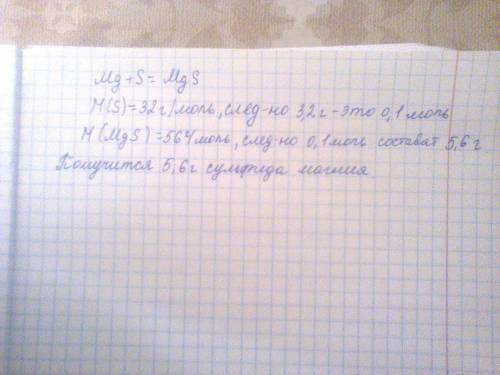 Mg + S = MgS
M(S)=32г/моль, след-но 3,2г - это 0,1 моль
M(MgS)=564моль, след-но 0,1моль состават 5,6 г
Получится 5,6г сульфида магния